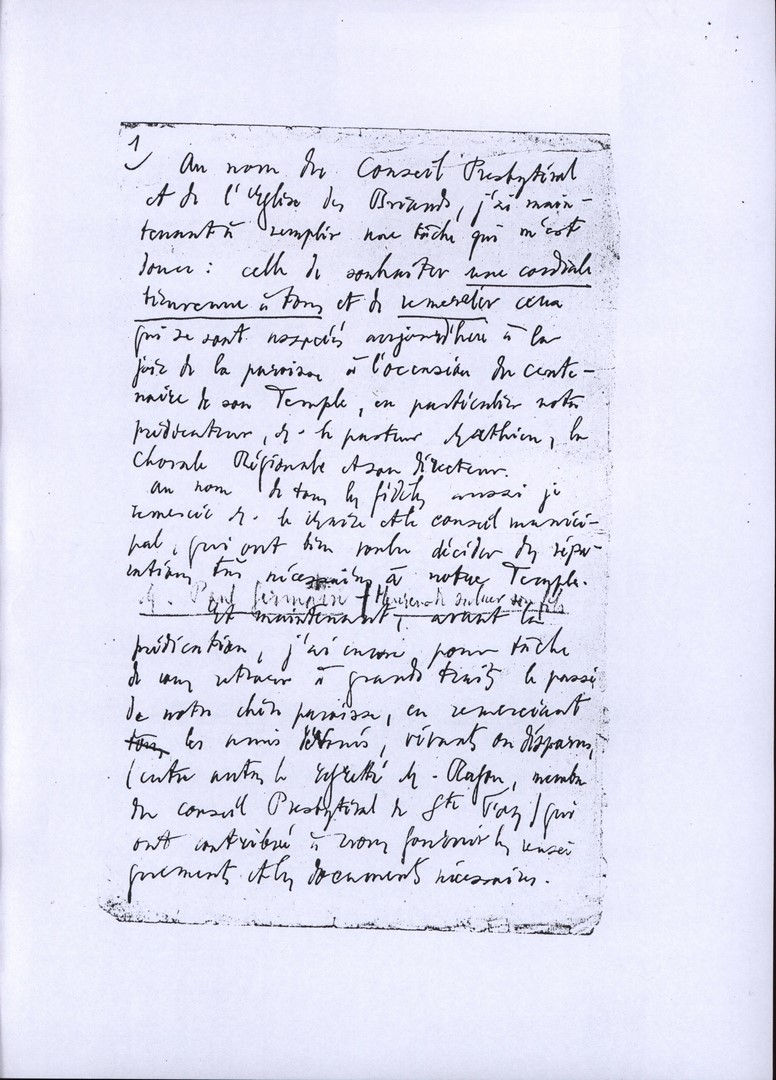 1
Au nom du Conseil Presbytéral
et de l'Eglise des Briands, j'ai main-
tenant à remplir une tâche qui m'est
douce : celle de souhaiter une cordiale
bienvenue à tous et de remercier ceux
qui se sont associés aujourd'hui à la
joie de la paroisse à l'occasion du cente-
naire de son Temple, en particulier notre
prédicateur, M. le pasteur Mathieu, la
Chorale Régionale et son directeur.
Au nom de tous les fidèles aussi je
remercie M. le Maire et le conseil munici-
pal, qui ont bien voulu décider des répa-
rations très nécessaires à notre Temple.
M. Paul
Et maintenant, avant la
prédication, j'ai encore pour tâche
de vous retracer à grands traits le passé
de notre chère paroisse, en remerciant
tous les amis, vivants ou disparus,
(entre autres le regretté M. Rafon, membre
du conseil Presbytéral de Ste Foy) qui
ont contribué à nous fournir les rensei
gnements et les documents nécessaires.